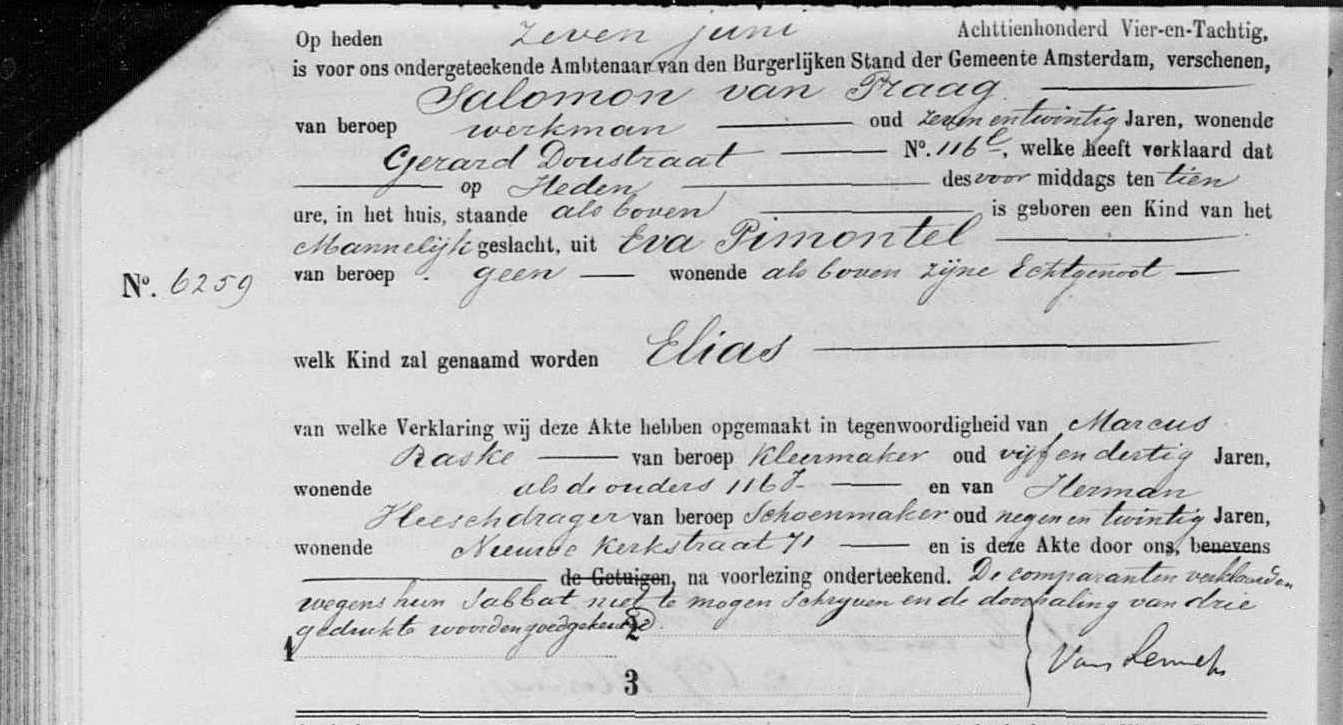 Op heden zeven juni Achttienhonderd Vier-en-Tachtig,
is voor ons ondergeteekende Ambtenaar van den Burgerlijken Stand der Gemeente Amsterdam, verschenen,
Salomon van Praag
van beroep werkman oud zeven en twintig Jaren, wonende
Gerard Doustraat No. 116 welke heeft verklaard dat
op Heden des voor middags ten tien
ure, in het huis, staande als boven is geboren een Kind van het
Mannelijk geslacht, uit Eva Pimontel
No. 6259 van beroep geen wonende als boven zijne Echtgenoot
welk Kind zal genaamd worden Elias
van welke Verklaring wij deze Akte hebben opgemaakt in tegenwoordigheid van Marcus
Raske van beroep Kleermaker oud vijf en dertig Jaren,
wonende als de ouders 116 en van Herman
Heeschdrager van beroep Schoenmaker oud negen en twintig Jaren,
wonende Nieuwe Kerkstraat 71 en is deze Akte door ons, benevens
de Getuigen, na voorlezing onderteekend. De comparanten verklaarden
wegens hun Sabbat niet te mogen schryven en de doorhaling van drie
gedrukte woorden goedgekeurd
1
2
3
Van Lennep